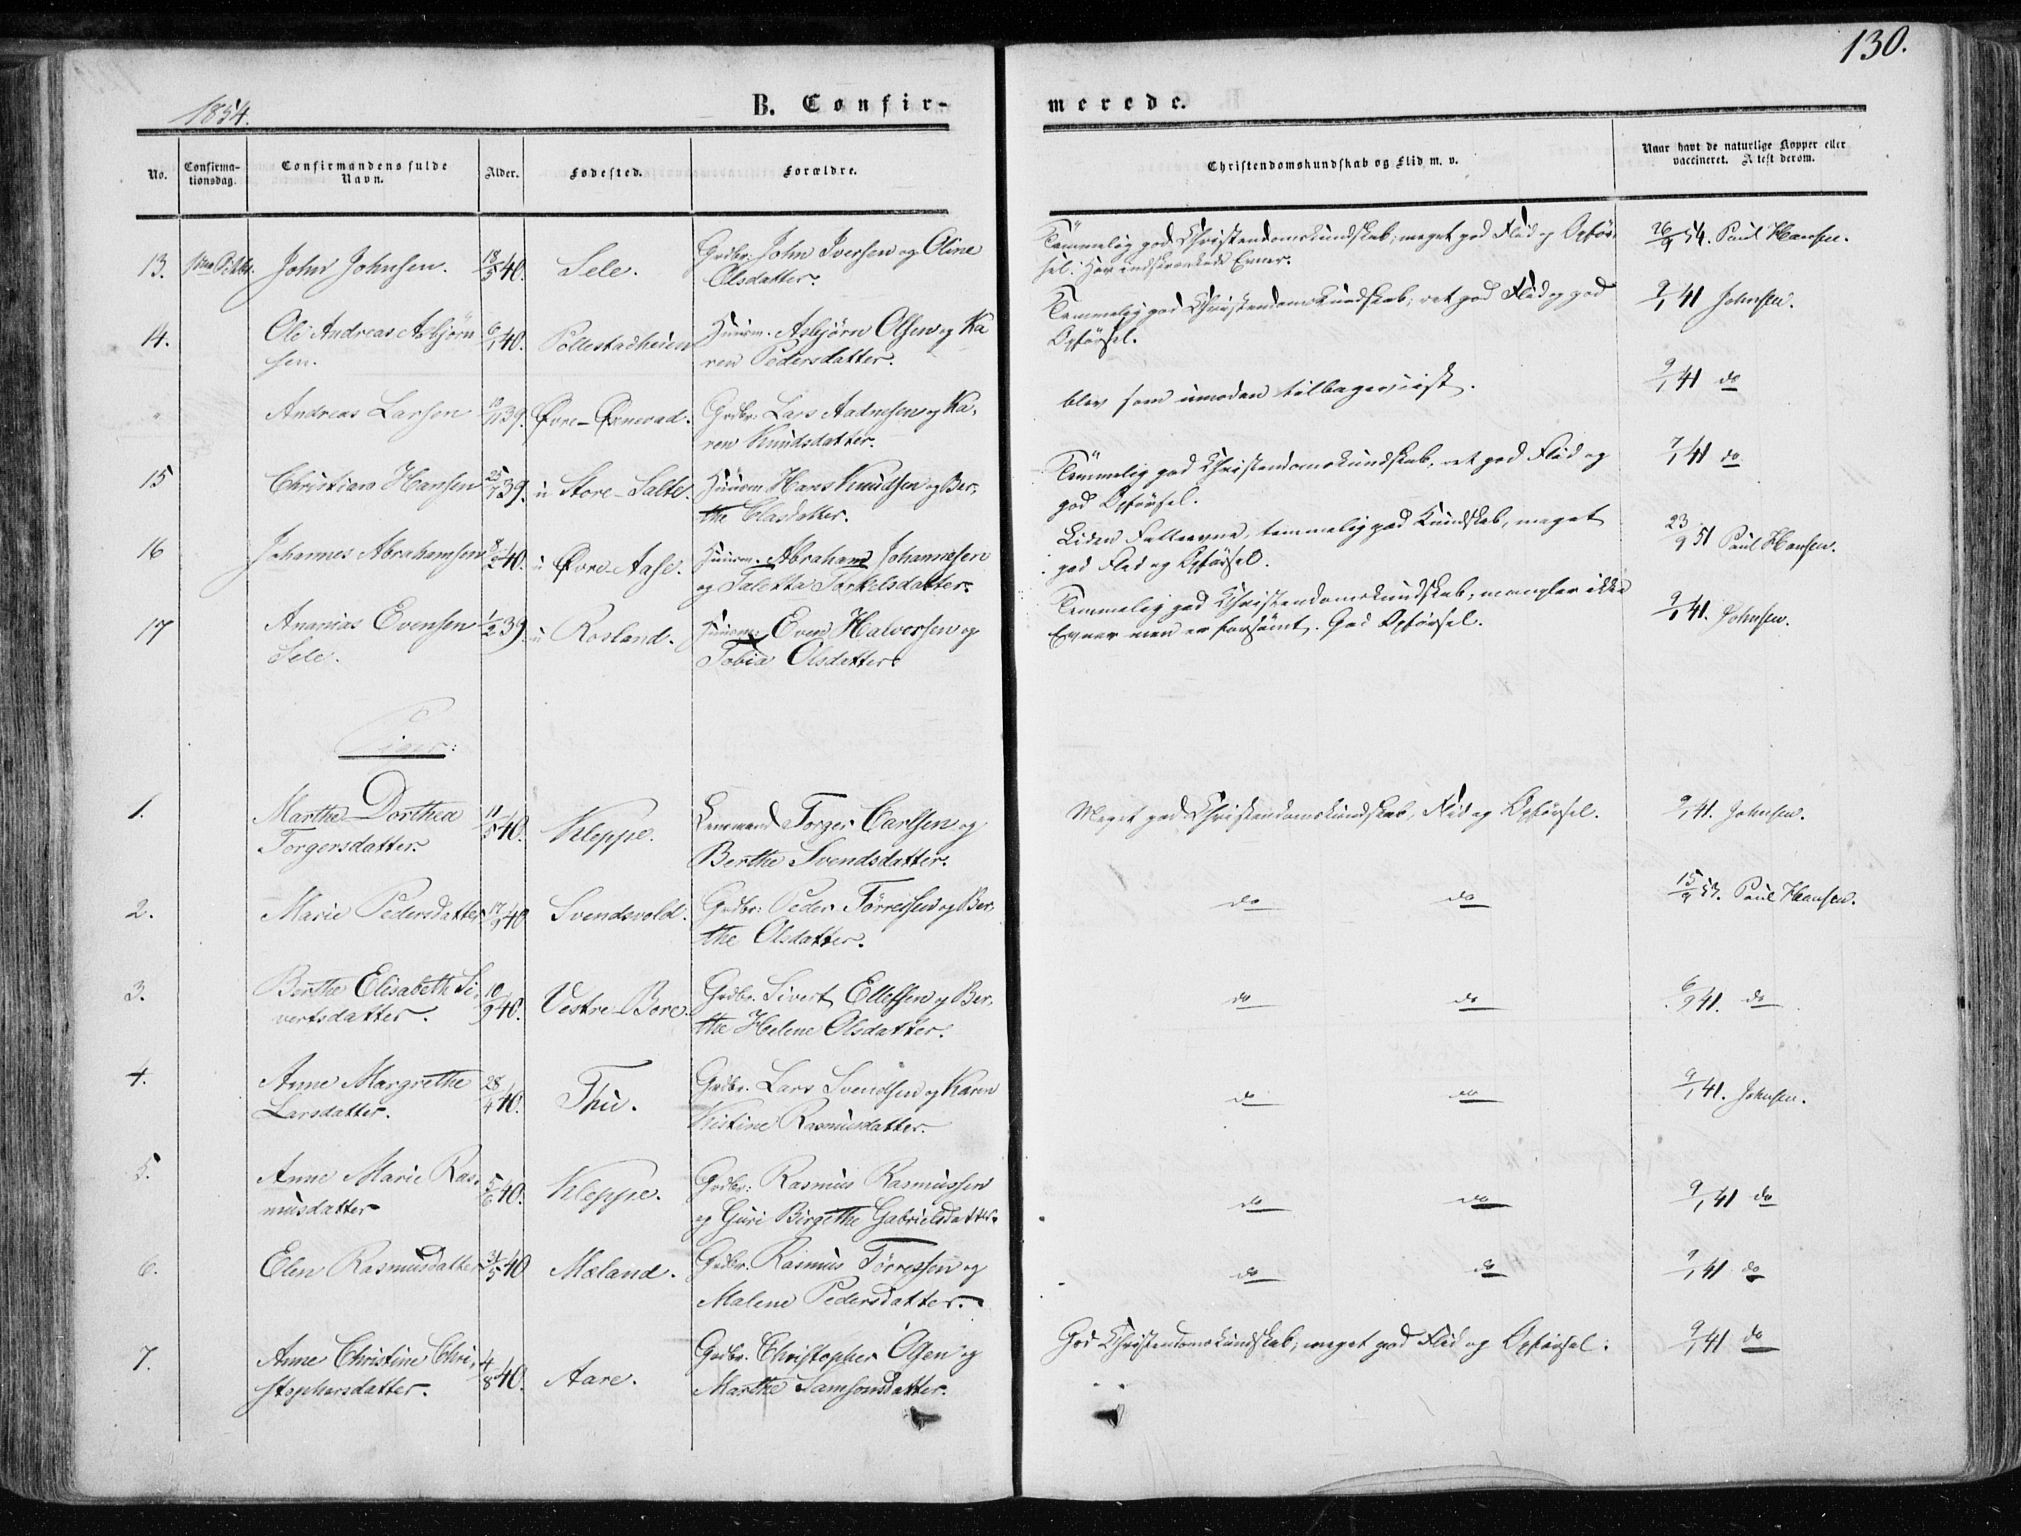 130.
1854.
B. Confir-
merede.
No.
Confirma-
tionsdag.
Confirmandens fulde
Navn.
Alder.
Fødested.
Forældre.
Christendomskundskab og Flid m. v.
Naar havt de naturlige Kopper eller
vaccineret. Attest derom.
13. John Johnsen. 18/5 40. Sele. Grdbr. John Iversen og Oline
Olsdatter.
Temmelig god Christendomskundskab; meget god Flid og Opfør-
sel. Har indskrænkede Evner.
26/9 54. Paul Hansen.
14. Ole Andreas Asbjørn
sen.
6/1 40. Pollestadheien Huusm. Asbjørn Olsen og Ka
ren Pedersdatter.
Temmelig god Christendomskundskab; ret god Flid og god
Opførsel.
9/1 41 Johnsen.
" Andreas Larsen 39. Øvre-Øxnevad. Grdbr. Lars Aadnesen og Ka-
ren Knudsdatter.
blev som umoden tilbageviist.
9/1 41 do
15 Christian Hansen 39. u Store-Salte. Huusm. Hans Knudsen og Ber-
the Olasdatter.
Temmelig god Christendomskundskab, ret god Flid og
god Opførsel.
7/1 41 do
16 Johannes Abrahamsen 8/2 40. u Øvre-Aase. Huusm. Abraham Johannesen
og Taletta Torkelsdatter.
Liden Fatteevne, temmelig god Kundskab, meget
god Flid og Opførsel.
23/9 51 Paul Hansen.
17 Ananias Evensen
Sele.
1/2 39. u Rosland. Huusm. Even Halvorsen og
Tobia Olsdatter.
Temmelig god Christendomskundskab, mangler ikke
Evner men er forsømt. God Opførsel.
9/1 41. Johnsen.
Piger:
1. Marthe Dorthea
Torgersdatter.
11/5 40. Kleppe. Torger Carlsen og
Berthe Svendsdatter.
Meget god Christendomskundskab, Flid og Opførsel.
9/1 41. Johnsen.
2. Marie Pedersdatter 40 Svendsvold. Grdbr. Peder Tørresen og Ber-
the Olsdatter.
do do
15/9 53. Paul Hansen.
3. Berthe Elisabeth Si-
vertsdatter.
10/9 40. Vestre-Bore. Grdbr. Sivert Ellefsen og Ber-
the Helene Olsdatter.
do do
6/9 41. do
4. Anne Margrethe
Larsdatter.
28/4 40. Thu. Grdbr. Lars Svendsen og Karen
Kistine Rasmusdatter.
do do
9/1 41. Johnsen.
5. Anne Marie Ras-
musdatter
5/6 40. Kleppe. Grdbr. Rasmus Rasmussen
og Guri Birgethe Gabrielsdatter.
do do
9/1 41 do
6. Elen Rasmusdatter 31/5 40 Mæland. Grdbr. Rasmus Tørressen og
Malene Pedersdatter.
do do
9/1 41 do
7. Anne Christine Chri-
stophersdatter.
4/8 40. Aare. Grdbr. Christopher Olsen og
Marthe Samsonsdatter.
God Christendomskundskab, meget god Flid og Opførsel.
9/1 41 do